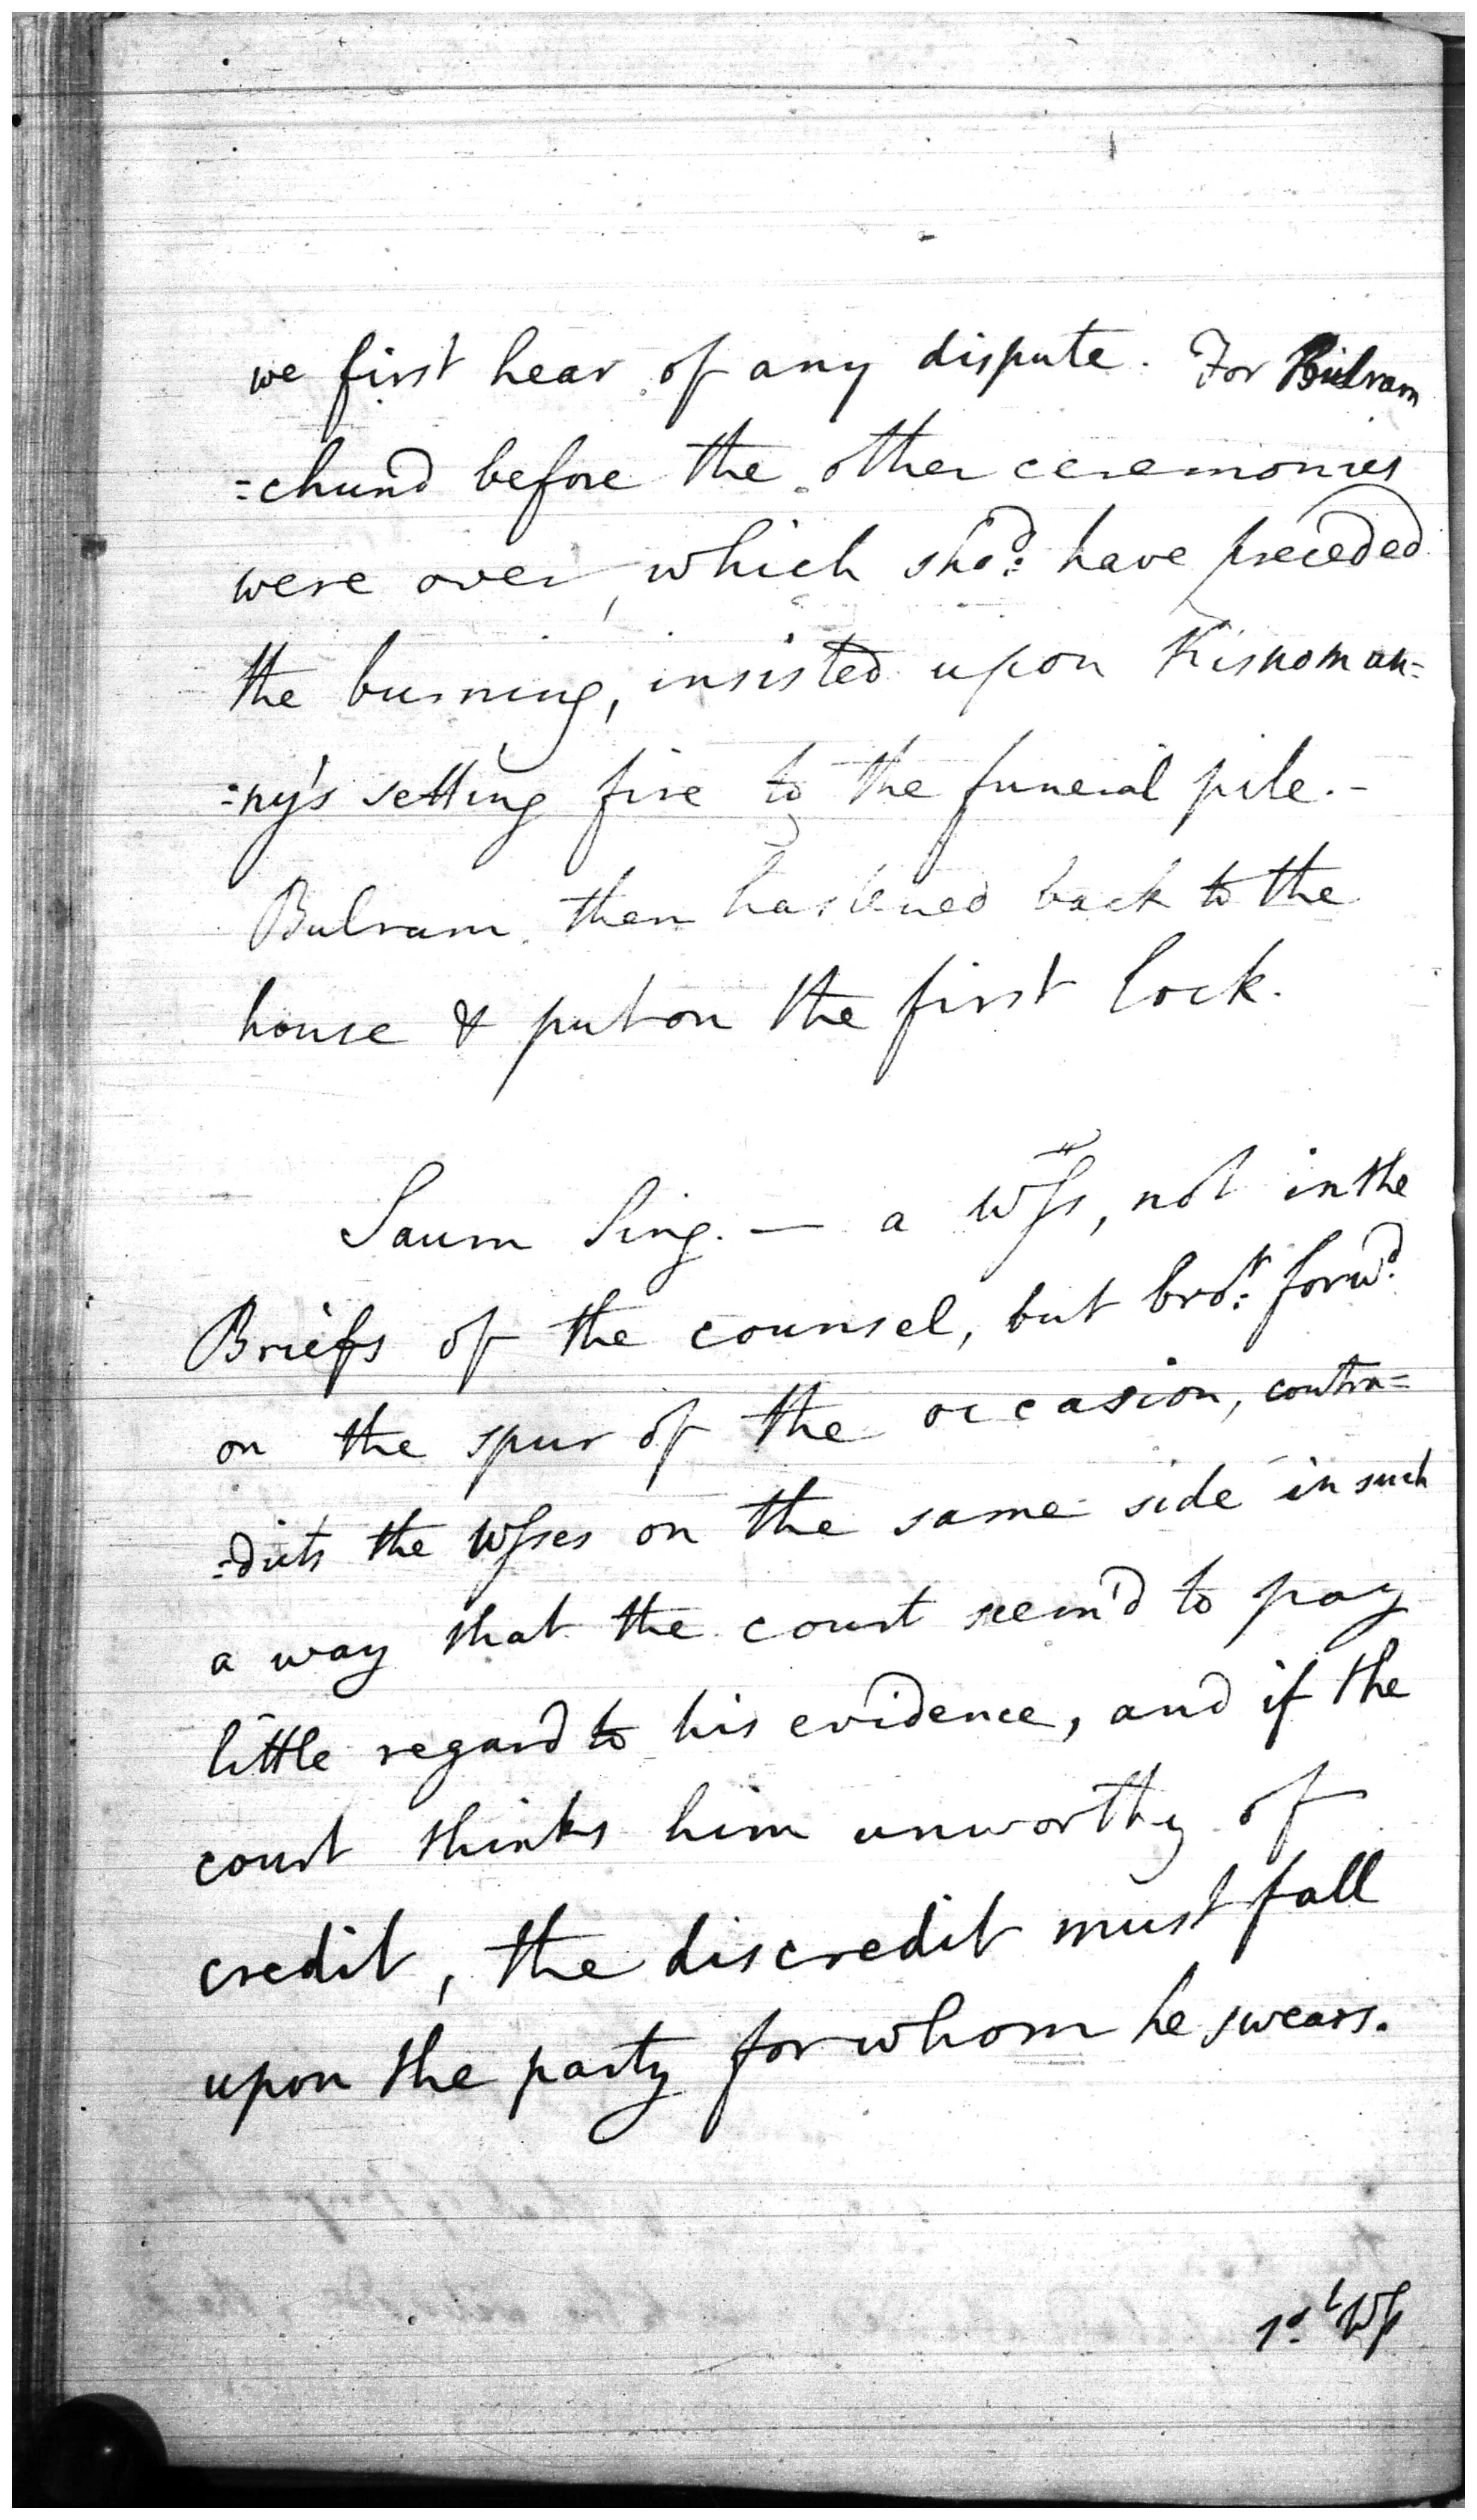 we first hear of any dispute. For Bulram
=chund before the other ceremonies
were over, which sho:d have preceded
the burning, insisted upon Kisnoman=
=ny's setting fire to the funeral pile.-
Bulram then hastened back to the
house & put on the first lock.
Saum Sing. — a Wſs, not in the
Briefs of the counsel, but bro:t forw.d
on the spur of the occasion, contra=
=dicts the Wſses on the same side in such
a way that the court seem'd to pay
little regard to his evidence, and if the
court thinks him unworthy of
credit, the discredit must fall
upon the party for whom he swears.
1s.t Wſs